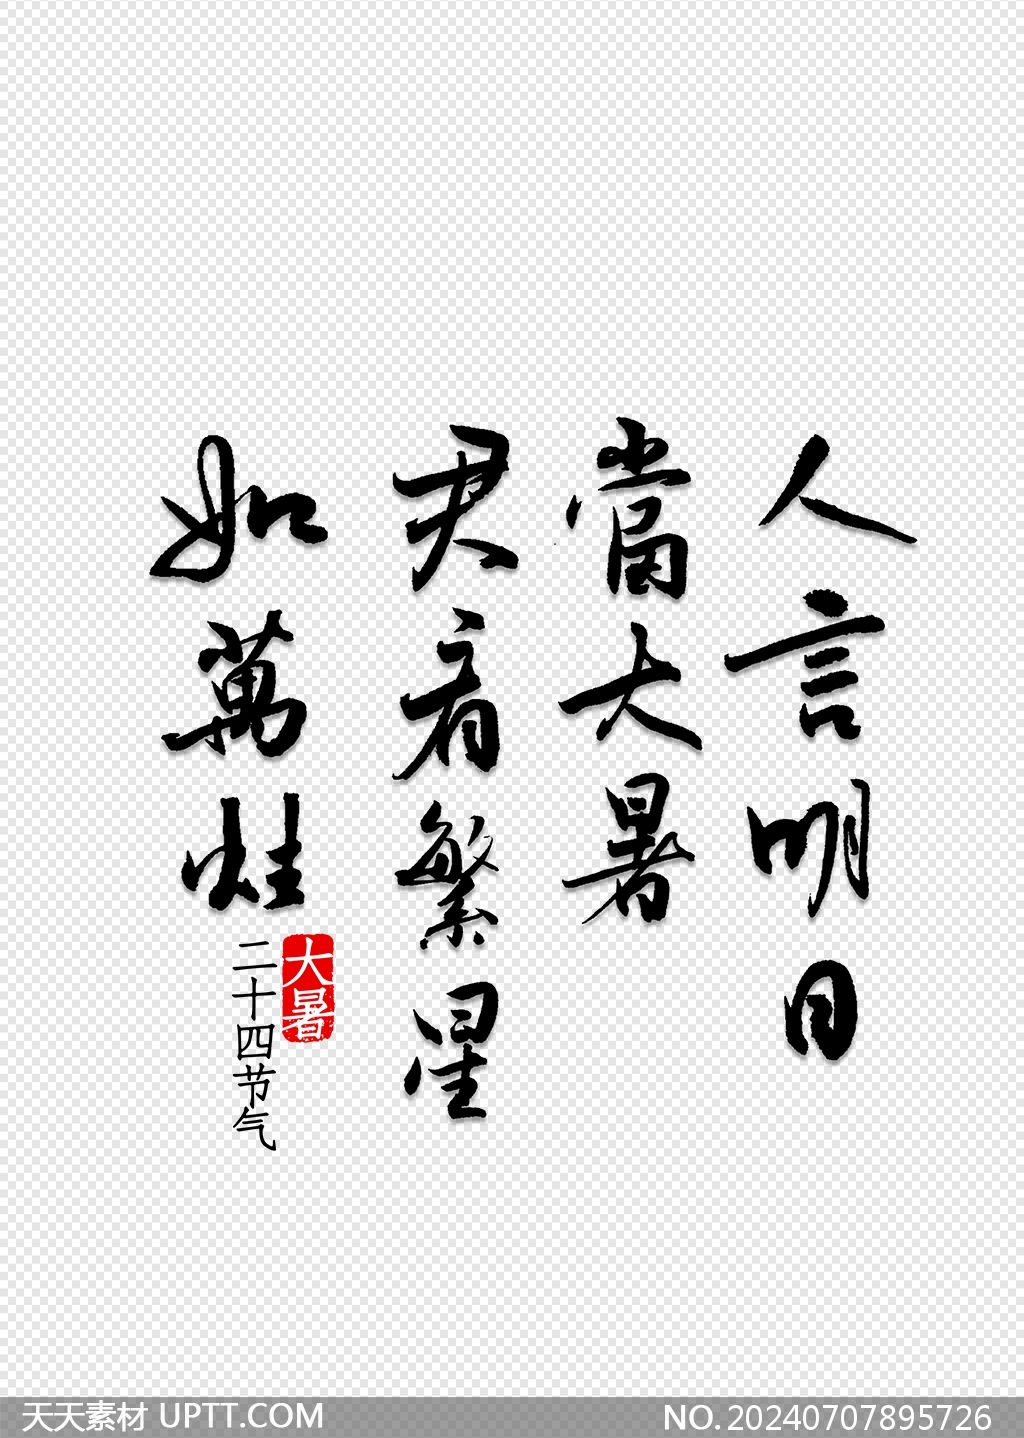 人言明日
當大暑
君看繁星
如萬炷
大暑
二十四节气
天天素材 UPTT.COM
NO.20240707895726